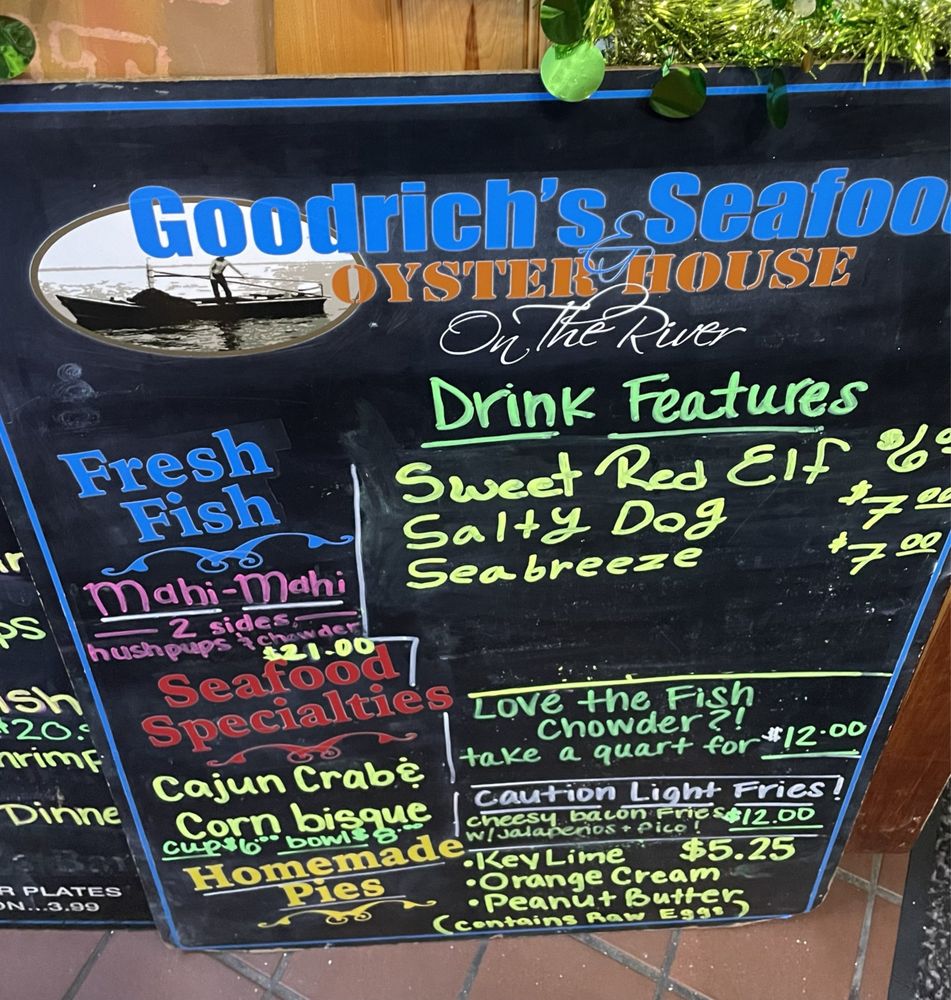 Goodrich's Seafoo
&
OYSTER HOUSE
On The River
Drink Features
Sweet Red Elf $6
Salty Dog $7.00
Seabreeze $7.00
Fresh
Fish
Mahi-Mahi
2 sides
hushpups & chowder
$21.00
Seafood
Specialties
Cajun Crab &
Corn bisque
cup $6.00 bowl $8.00
Love the Fish
Chowder?!
take a quart for $12.00
Caution Light Fries!
cheesy bacon Fries $12.00
w/ Jalapeños + Pico!
Homemade
Pies
• Key Lime $5.25
• Orange Cream
• Peanut Butter
(contains Raw Eggs)
ps
ish
$20.
hrimp
Dinne
R PLATES
ON...3.99